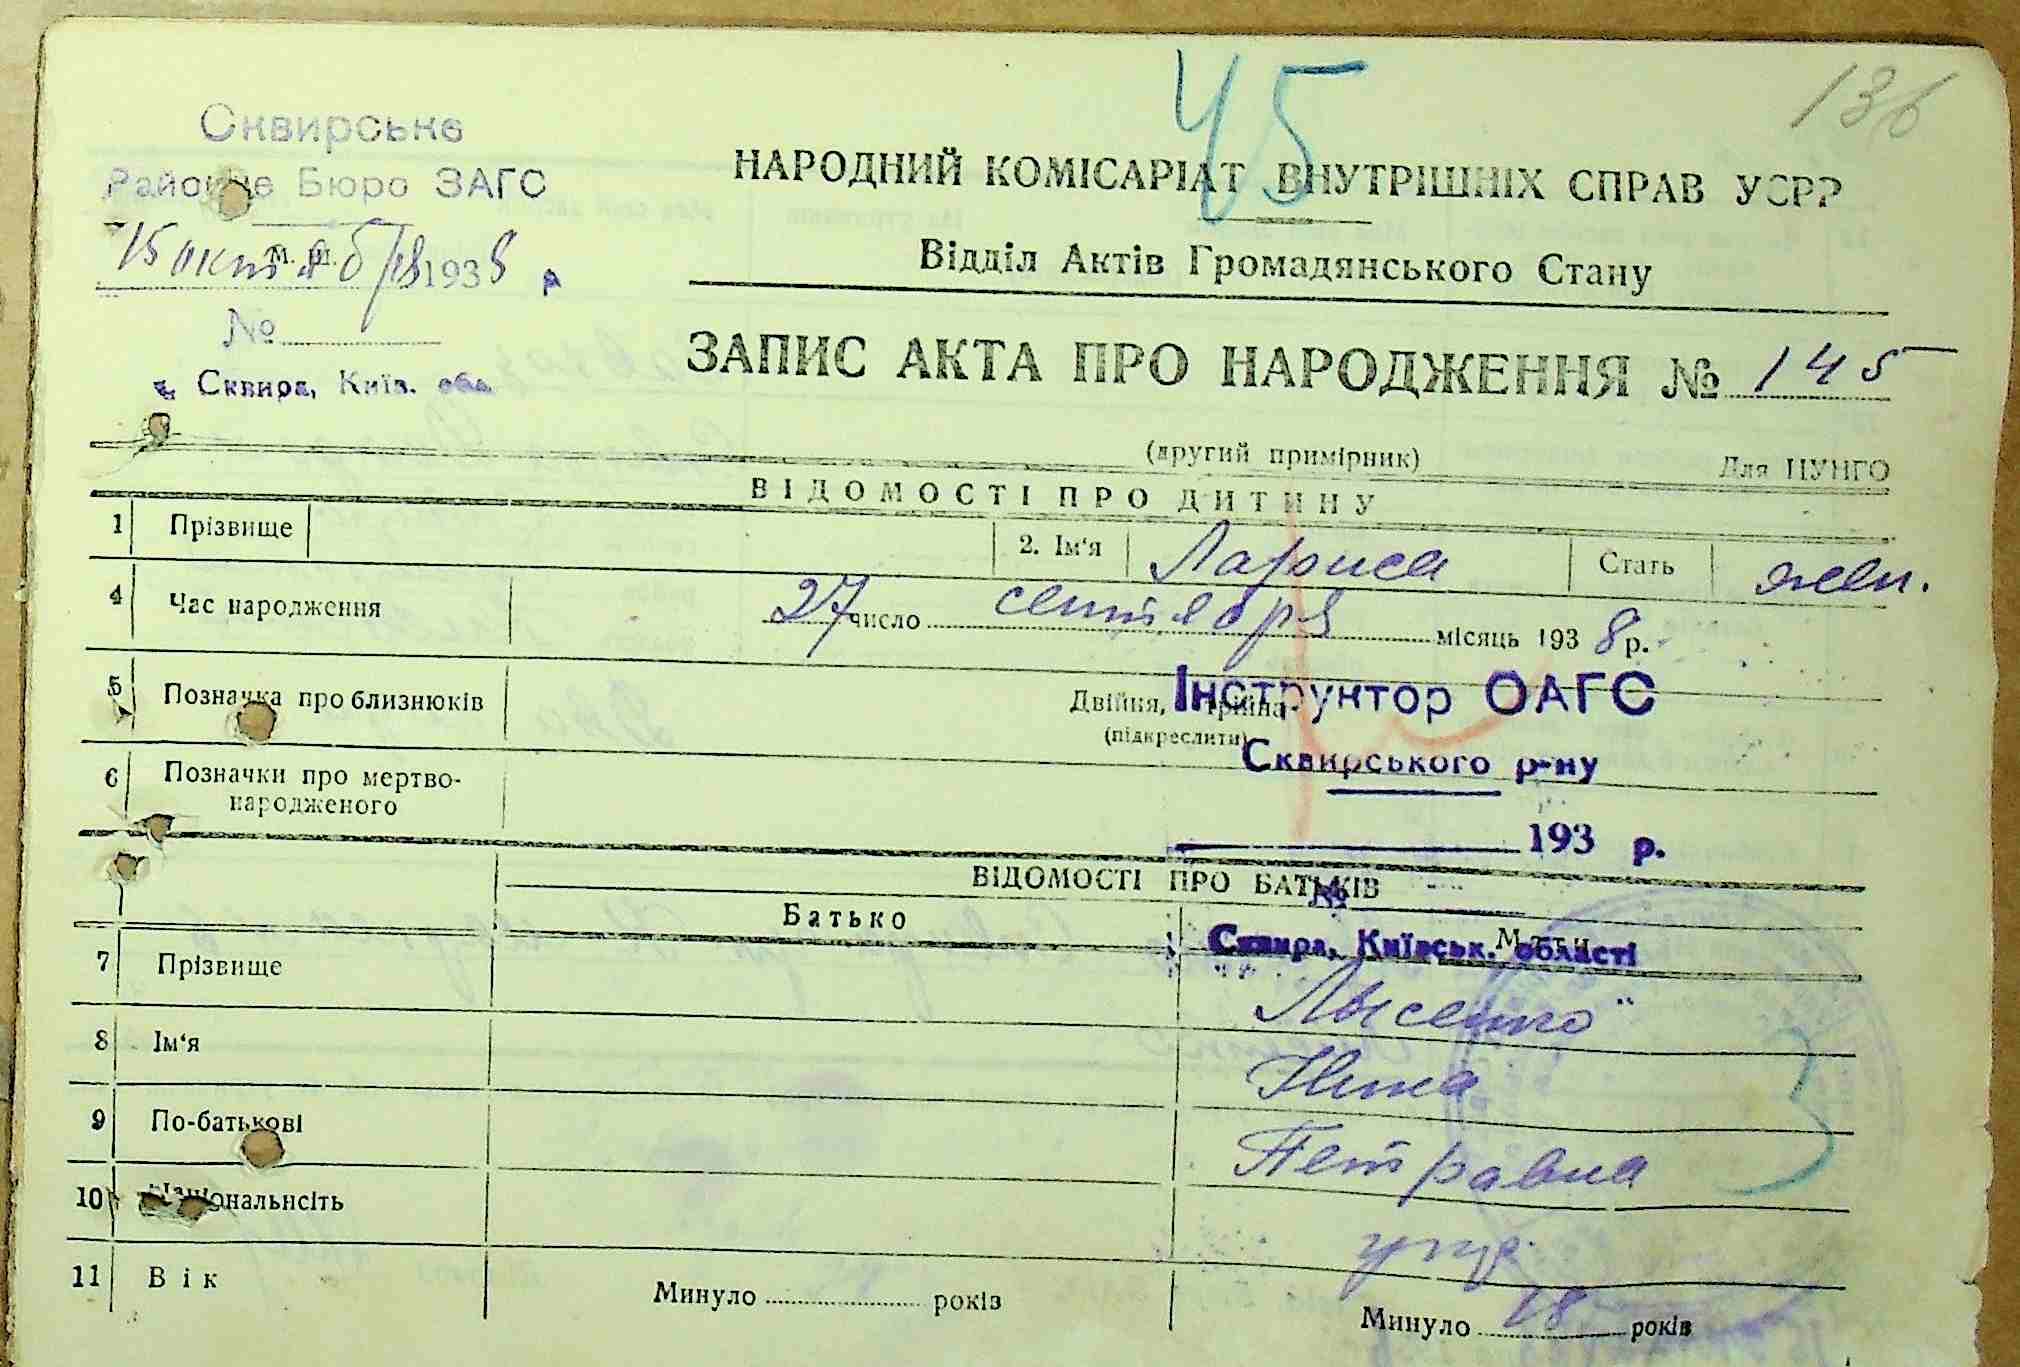 45
136
Сквирське
Районне Бюро ЗАГС
15 октября 1938 р
№
м. Сквира, Київ. обл
НАРОДНИЙ КОМІСАРІАТ ВНУТРІШНІХ СПРАВ УСРР
Відділ Актів Громадянського Стану
ЗАПИС АКТА ПРО НАРОДЖЕННЯ № 145
(другий примірник) Для ЦУНГО
ВІДОМОСТІ ПРО ДИТИНУ
1 Прізвище 2. Ім‘я Лариса Стать жен.
4 Час народження 27 число сентября місяць 1938 р.
5 Позначка про близнюків Двійня, трійня
(підкреслити)
Інструктор ОАГС
Сквирського р-ну
6 Позначки про мертво-
народженого
193 р.
№
Сквира, Київськ. області
ВІДОМОСТІ ПРО БАТЬКІВ
Батько Мати
7 Прізвище Лысенко
8 Ім‘я Нина
9 По-батькові Петравна
10 Національнсіть укр.
11 Вік Минуло років Минуло 18 років